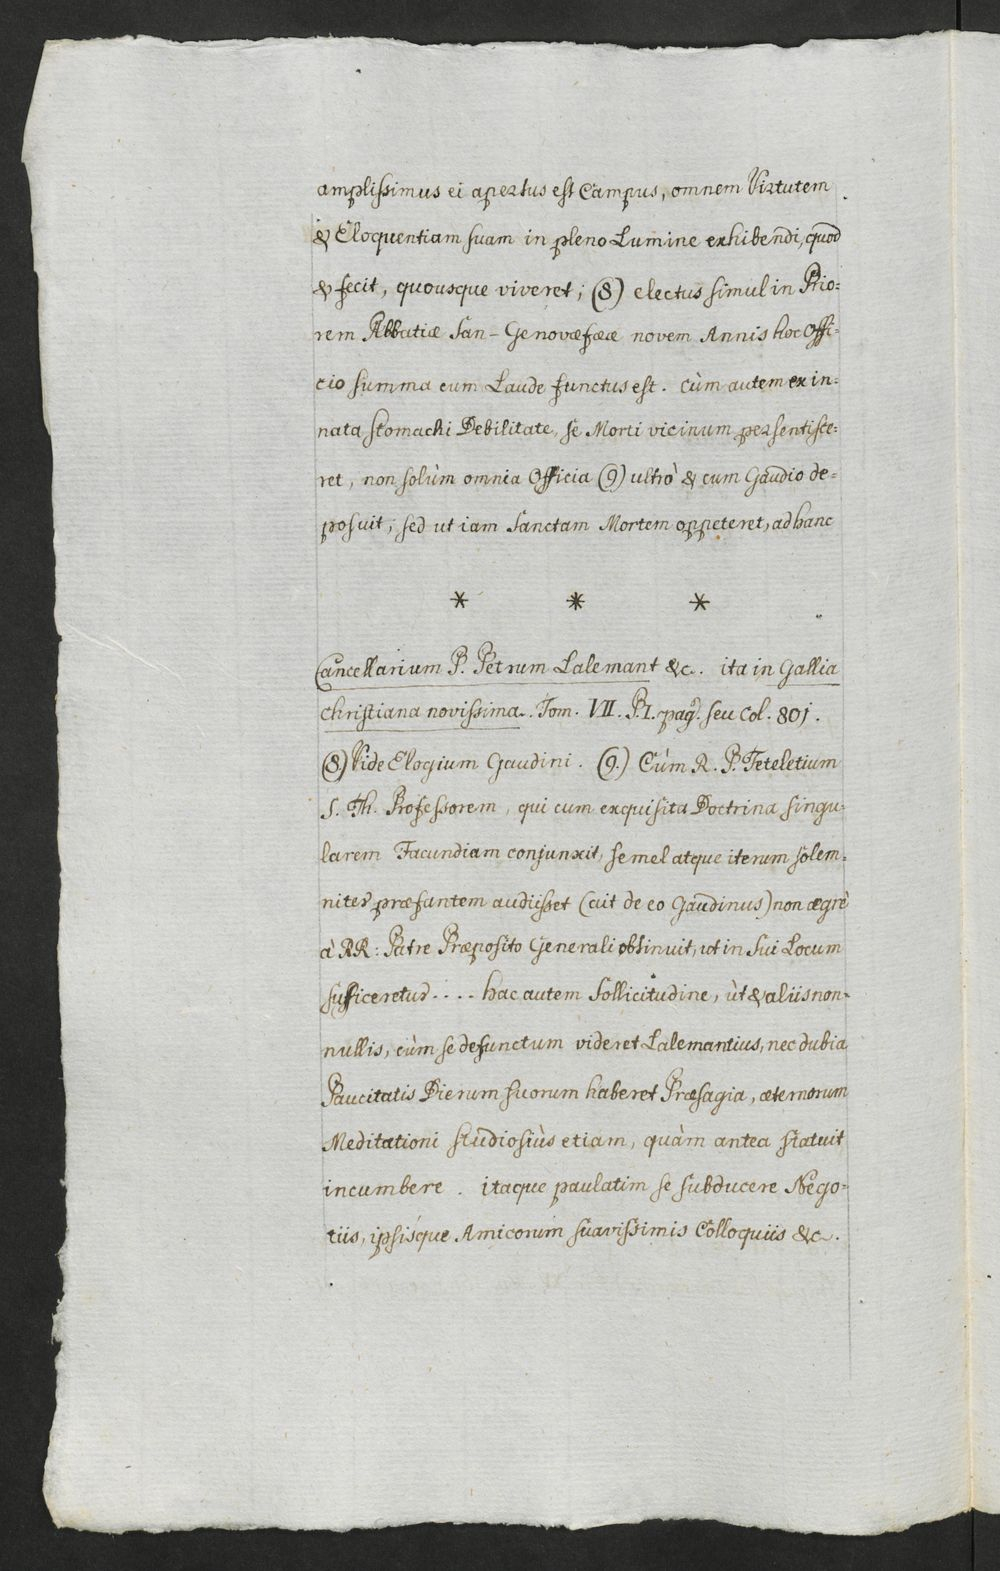 amplissimus ei apertus est Campus, omnem Virtutem
& Eloquentiam suam in pleno Lumine exhibendi, quod
& fecit, quousque viveret; (8) electus simul in Prio=
rem Abbatiæ San-Genovæfææ novem Annis hoc Offi=
cio summa cum Laude functus est. Cùm autem ex in=
nata stomachi Debilitate, se Morti vicinum persentisce=
ret, non solùm omnia Officia (9) ultrò & cum Gaudio de=
posuit; sed ut iam Sanctam Mortem oppeteret, ad hanc
* * *
Cancellarium P. Petrum Lalemant &c. ita in Gallia
Christiana novissima. Tom. VII. P.I. pag. seu Col. 801.
(8) Vide Elogium Gaudini. (9.) Cùm R. P. Teteletium
S. Th. Professorem, qui cum exquisita Doctrina singu=
larem Facundiam conjunxit, semel atque iterum solem=
niter præfantem audiisset (ait de eo Gaudinus) non ægrè
à RR: Patre Præposito Generali obtinuit, ut in sui Locum
sufficeretur.... hac autem Sollicitudine, ùt & aliis non=
nullis, cùm se defunctum videret Lalemantius, nec dubia
Paucitatis Dierum suorum haberet Præsagia, æternorum
Meditationi studiosiùs etiam, quàm antea statuit
incumbere. itaque paulatim se subducere Nego=
tiis, ipsisque Amicorum suavissimis Colloquiis &c.